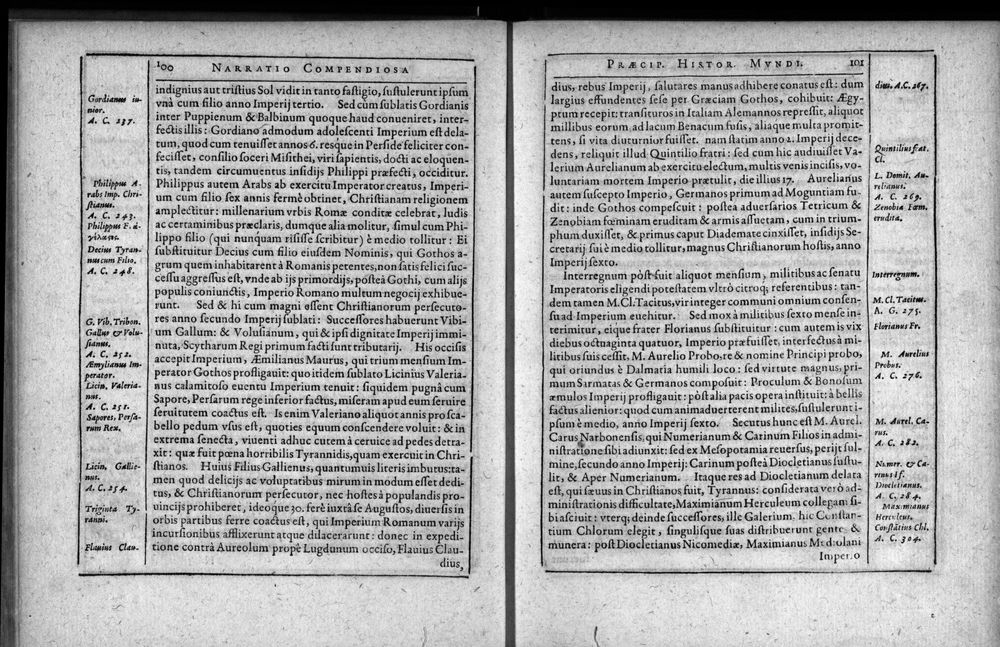 100 NARRATIO COMPENDIOSA
indignius aut tristius Sol vidit in tanto fastigio, sustulerunt ipsum
vnà cum filio anno Imperij tertio. Sed cum sublatis Gordianis
inter Puppienum & Balbinum quoque haud conueniret, inter-
fectis illis: Gordiano admodum adolescenti Imperium est dela-
tum, quod cum tenuisset annos 6. resque in Perside feliciter con-
fecisset, consilio soceri Misithei, viri sapientis, docti ac eloquen-
tis, tandem circumuentus insidijs Philippi præfecti, occiditur.
Philippus autem Arabs ab exercitu Imperator creatus, Imperi-
um cum filio sex annis fermè obtinet, Christianam religionem
amplectitur: millenarium vrbis Romæ conditæ celebrat, ludis
ac certaminibus præclaris, dumque alia molitur, simul cum Phi-
lippo filio (qui nunquam risisse scribitur) è medio tollitur: Ei
substituitur Decius cum filio eiusdem Nominis, qui Gothos a-
grum quem inhabitarent à Romanis petentes, non satis felici suc-
cessu aggressus est, vnde ab ijs primordijs, posteà Gothi, cum alijs
populis coniunctis, Imperio Romano multum negocij exhibue-
runt. Sed & hi cum magni essent Christianorum persecuto-
res anno secundo Imperij sublati: Successores habuerunt Vibi-
um Gallum: & Volusianum, qui & ipsi dignitate Imperij immi-
nuta, Scytharum Regi primum facti sunt tributarij. His occisis
accepit Imperium, Æmilianus Maurus, qui trium mensium Im-
perator Gothos profligauit: quo itidem sublato Licinius Valeria-
nus calamitoso euentu Imperium tenuit: siquidem pugnâ cum
Sapore, Persarum rege inferior factus, miseram apud eum seruire
seruitutem coactus est. Is enim Valeriano aliquot annis pro sca-
bello pedum vsus est, quoties equum conscendere voluit: & in
extrema senecta, viuenti adhuc cutem à ceruice ad pedes detra-
xit: quæ fuit pœna horribilis Tyrannidis, quam exercuit in Chri-
stianos. Huius Filius Gallienus, quantumuis literis imbutus: ta-
men quod delicijs ac voluptatibus mirum in modum esset dedi-
tus, & Christianorum persecutor, nec hostes à populandis pro-
uincijs prohiberet, ideoque 30. ferè iuxtà se Augustos, diuersis in
orbis partibus ferre coactus est, qui Imperium Romanum varijs
incursionibus afflixerunt atque dilacerarunt: donec in expedi-
tione contrà Aureolum propè Lugdunum occiso, Flauius Clau-
dius,
Gordianus iu-
nior.
A. C. 237.
Philippus A-
rabs Imp. Chri-
stianus.
A. C. 243.
Philippus F. ἀ-
γέλαςος.
Decius Tyran-
nus cum Filio.
A. C. 248.
G. Vib. Tribon.
Gallus & Volu-
sianus.
A. C. 252.
Æmylianus Im-
perator.
Licin. Valeria-
nus.
A. C. 251.
Sapores, Persa-
rum Rex.
Licin. Gallie-
nus.
A. C. 254.
Triginta Ty-
ranni.
Flauius Clau.
PRÆCIP. HISTOR. MVNDI. 101
dius, rebus Imperij, salutares manus adhibere conatus est: dum
largius effundentes sese per Græciam Gothos, cohibuit: Ægy-
ptum recepit: transituros in Italiam Alemannos repressit, aliquot
millibus eorum ad lacum Benacum fusis, aliaque multa promit-
tens, si vita diuturnior fuisset. nam statim anno 2. Imperij dece-
dens, reliquit illud Quintilio fratri: sed cum hic audiuisset Va-
lerium Aurelianum ab exercitu electum, multis venis incisis, vo-
luntariam mortem Imperio prætulit, die illius 17. Aurelianus
autem suscepto Imperio, Germanos primum ad Moguntiam fu-
dit: inde Gothos compescuit: posteà aduersarios Tetricum &
Zenobiam fœminam eruditam & armis assuetam, cum in trium-
phum duxisset, & primus caput Diademate cinxisset, insidijs Se-
cretarij sui è medio tollitur, magnus Christianorum hostis, anno
Imperij sexto.
Interregnum pòst fuit aliquot mensium, militibus ac senatu
Imperatoris eligendi potestatem vltrò citroq; referentibus: tan-
dem tamen M. Cl. Tacitus, vir integer communi omnium consen-
su ad Imperium euehitur. Sed mox à militibus sexto mense in-
terimitur, eique frater Florianus substituitur: cum autem is vix
diebus octuaginta quatuor, Imperio præfuisset, interfectus à mi-
litibus suis cessit. M. Aurelio Probo, re & nomine Principi probo,
qui oriundus è Dalmatia humili loco: sed virtute magnus, pri-
mum Sarmatas & Germanos composuit: Proculum & Bonosum
æmulos Imperij profligauit: pòst alia pacis opera instituit: à bellis
factus alienior: quod cum animaduerterent milites, sustulerunt i-
psum è medio, anno Imperij sexto. Secutus hunc est M. Aurel.
Carus Narbonensis, qui Numerianum & Carinum Filios in admi-
nistratione sibi adiunxit: sed ex Mesopotamia reuersus, perijt ful-
mine, secundo anno Imperij: Carinum posteà Diocletianus sustu-
lit, & Aper Numerianum. Itaque res ad Diocletianum delata
est, qui sæuus in Christianos fuit, Tyrannus: considerata verò ad-
ministrationis difficultate, Maximianum Herculeum collegam si-
bi asciuit: vterq; deinde successores, ille Galerium, hic Constan-
tium Chlorum elegit, singulisque suas distribuerunt gente &
munera: post Diocletianus Nicomediæ, Maximianus Mediolani
Imperio
dius. A.C. 267.
Quintilius frat.
Cl.
L. Domit. Au-
relianus.
A. C. 269.
Zenobia Fœm.
erudita.
Interregnum.
M. Cl. Tacitus.
A. C. 275.
Florianus Fr.
M. Aurelius
Probus.
A. C. 276.
M. Aurel. Ca-
rus.
A. C. 282.
Numer. & Ca-
rinus If.
Diocletianus.
A. C. 284.
Maximianus
Herculeus.
Constātius Chl.
A. C. 304.